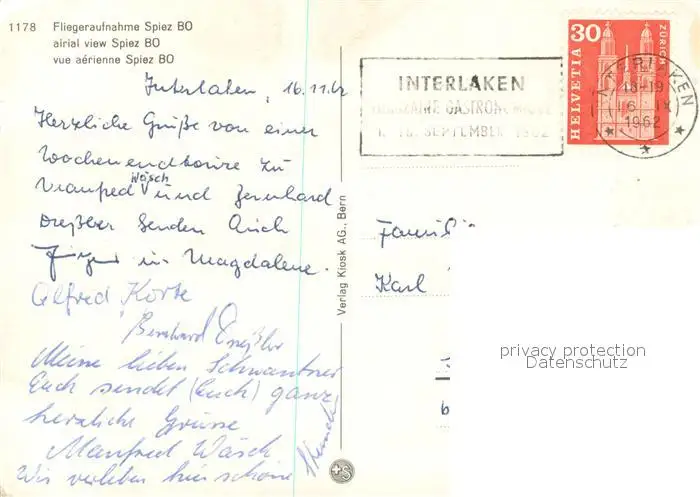 1178 Fliegeraufnahme Spiez BO
airial view Spiez BO
vue aérienne Spiez BO
Interlaken, 16.11.62
Herzliche Grüße von einer
Wochenendtour zu
Manfred Wäsch und Bernhard
Dreßler senden Euch
und Magdalene.
Alfred Korte
Bernhard Dreßler
Meine lieben Schwantner
Euch sendet (Euch) ganz
herzliche Grüsse
Manfred Wäsch
Wir verleben hier schöne
Stunden
Verlag Kiosk AG., Bern
S
INTERLAKEN
GASTRONOMIQUE
SEPTEMBER 1962
30
HELVETIA
ZÜRICH
INTERLAKEN
18-19
1962
Famili
Karl
privacy protection
Datenschutz